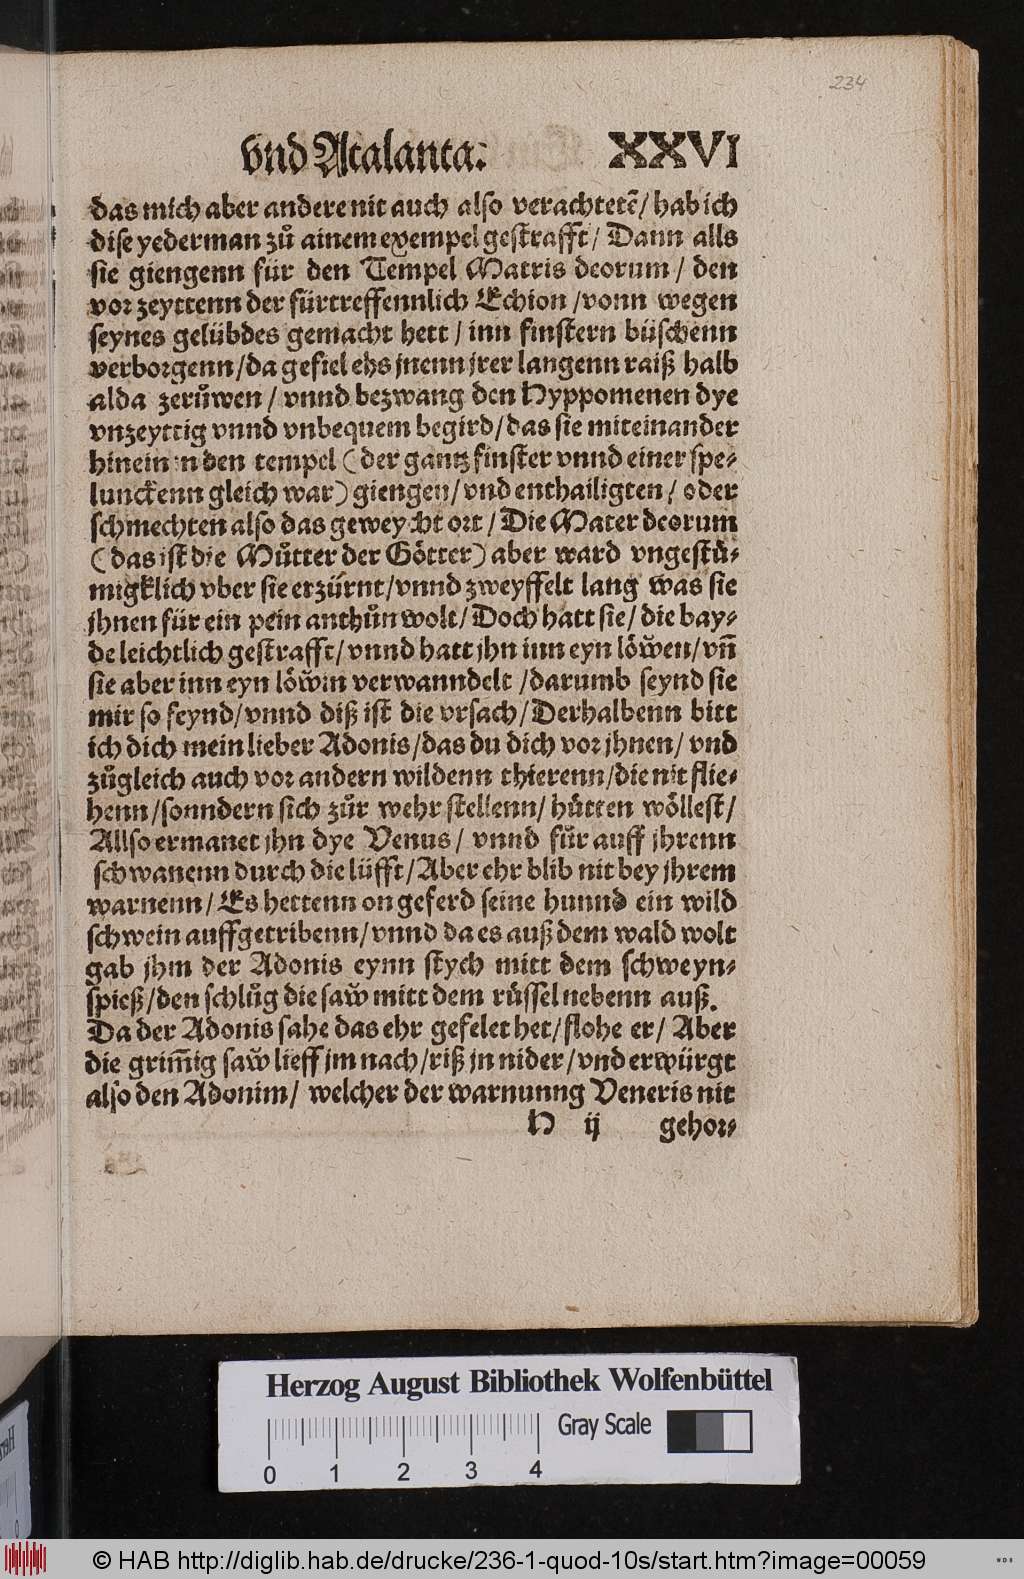 234
vnd Atalanta: XXVI
das mich aber andere nit auch also verachtetẽ/ hab ich
dise yederman zů ainem exempel gestrafft/ Dann alls
sie giengenn für den Tempel Matris deorum/ den
vor zeyttenn der fürtreffennlich Echion /vonn wegen
seynes gelübdes gemacht hett / inn finstern büschenn
verborgenn/da gefiel ehs jnenn jrer langenn raiß halb
alda zerůwen / vnnd bezwang den Hyppomenen dye
vnzeyttig vnnd vnbequem begird/das sie miteinander
hinein in den tempel (der gantz finster vnnd einer spe-
lunckenn gleich war) giengen/vnd enthailigten/ oder
schmechten also das geweycht ort / Die Mater deorum
(das ist die Můtter der Götter) aber ward vngestů-
migklich vber sie erzürnt/vnnd zweyffelt lang was sie
jhnen für ein pein anthůn wolt/ Doch hatt sie/ die bay-
de leichtlich gestrafft/vnnd hatt jhn inn eyn löwen/vñ
sie aber inn eyn löwin verwanndelt /darumb seynd sie
mir so feynd/vnnd diß ist die vrsach/ Derhalbenn bitt
ich dich mein lieber Adonis/das du dich vor jhnen/ vnd
zůgleich auch vor andern wildenn thierenn/die nit flie-
henn/sonndern sich zůr wehr stellenn/ hütten wöllest/
Allso ermanet jhn dye Venus/ vnnd fůr auff jhrenn
schwanenn durch die lüfft/ Aber ehr blib nit bey jhrem
warnenn/ Es hettenn on geferd seine hunnd ein wild
schwein auffgetribenn/vnnd da es auß dem wald wolt
gab jhm der Adonis eynn stych mitt dem schweyn-
spieß/den schlůg die saw mitt dem rüssel nebenn auß.
Da der Adonis sahe das ehr gefelet het/flohe er/ Aber
die grim̃ig saw lieff jm nach/riß jn nider/vnd erwürgt
also den Adonim/ welcher der warnunng Veneris nit
H ij gehor-
Herzog August Bibliothek Wolfenbüttel
Gray Scale
0 1 2 3 4
© HAB http://diglib.hab.de/drucke/236-1-quod-10s/start.htm?image=00059